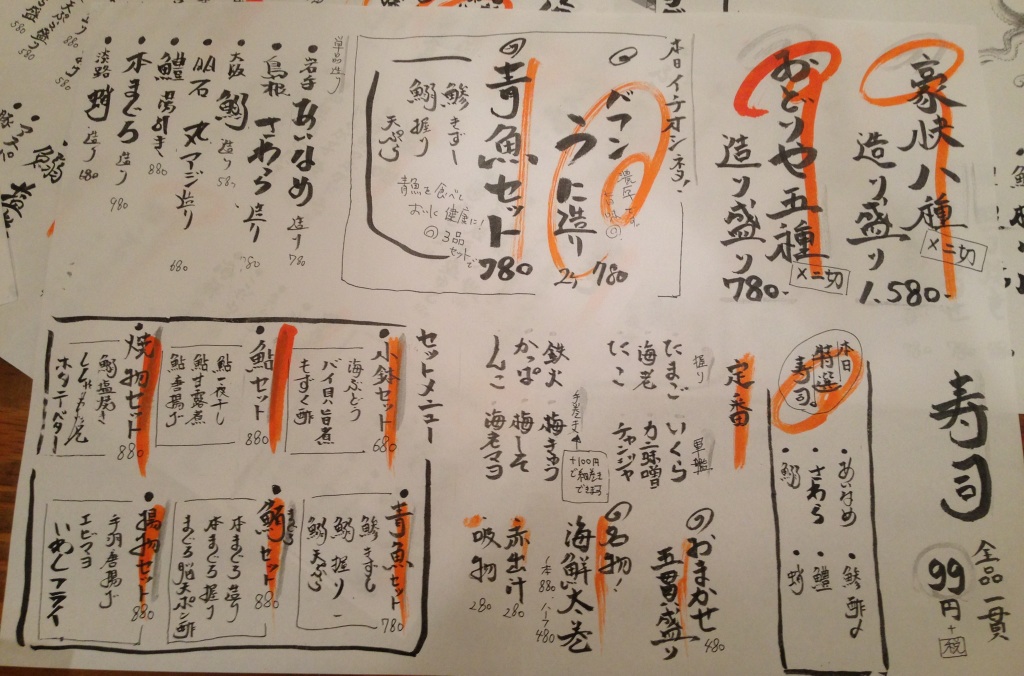 豪快八種
造り盛り
×二切
1.580-
おどりや五種
造り盛り
×二切
780-
本日イチオシネタ!
バフン
うに造り
780
青魚セット
780
鯵きずし
鰯握り
天ぷら
青魚を食べて
おいに健康に!
◎3品
セットで
単品造り
岩手あいなめ
造り
780
島根さわら
造り
780
大阪鰯
造り
580
明石丸アジ造り
680
鱧湯びき
880
本まぐろ
造り
980
淡路蛸
造り
680
寿司
全品一貫
99円
+税
本日
特選
寿司。
あいなめ
さわら
鰯
鯵酢〆
鱧
蛸
定番
握り
たまご
海老
たこ
軍艦
いくら
カニ味噌
チャンジャ
手巻き
鉄火
かっぱ
しんこ
梅きゅう
梅しそ
海老マヨ
+100円
で細巻き
できます
おまかせ
五貫盛り
480
名物!
海鮮太巻
一本880
ハーフ480
赤出汁
280
吸物
280
セットメニュー
小鉢セット
680
海ぶどう
バイ貝の旨煮
もずく酢
鮎セット
880
鮎一夜干し
鮎甘露煮
鮎唐揚げ
焼物セット
880
鰯塩焼き
ホタテバター
青魚セット
780
鯵きずし
鰯握り
鰯天ぷら
まぐろ
鮪セット
880
本まぐろ造り
本まぐろ握り
まぐろ脳天ポン酢
揚物セット
880
手羽唐揚げ
エビマヨ
いわしフライ